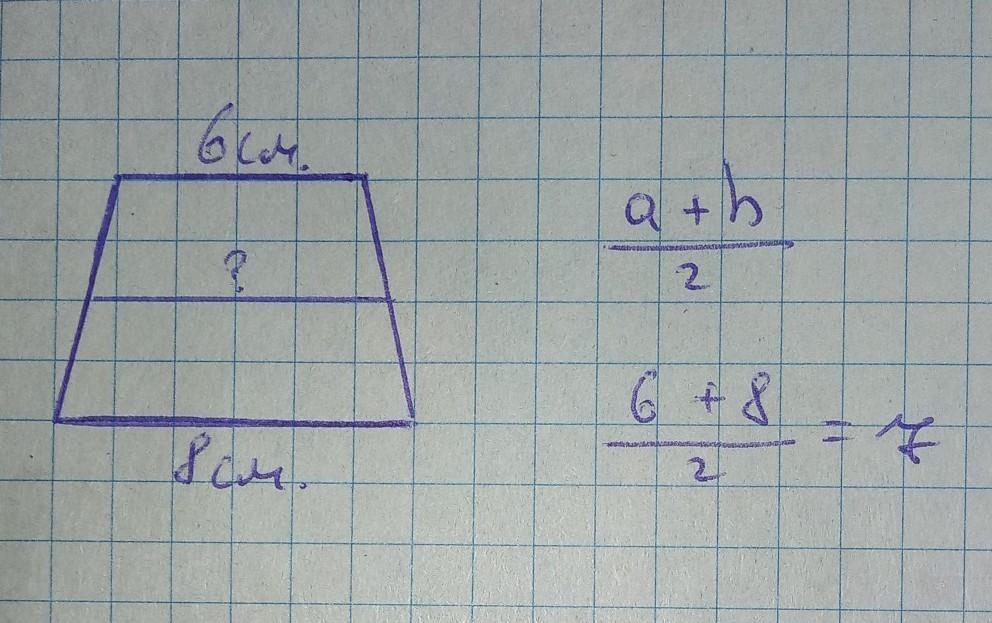 6 см.
?
8 см.
a + b
2
6 + 8
2
= 7